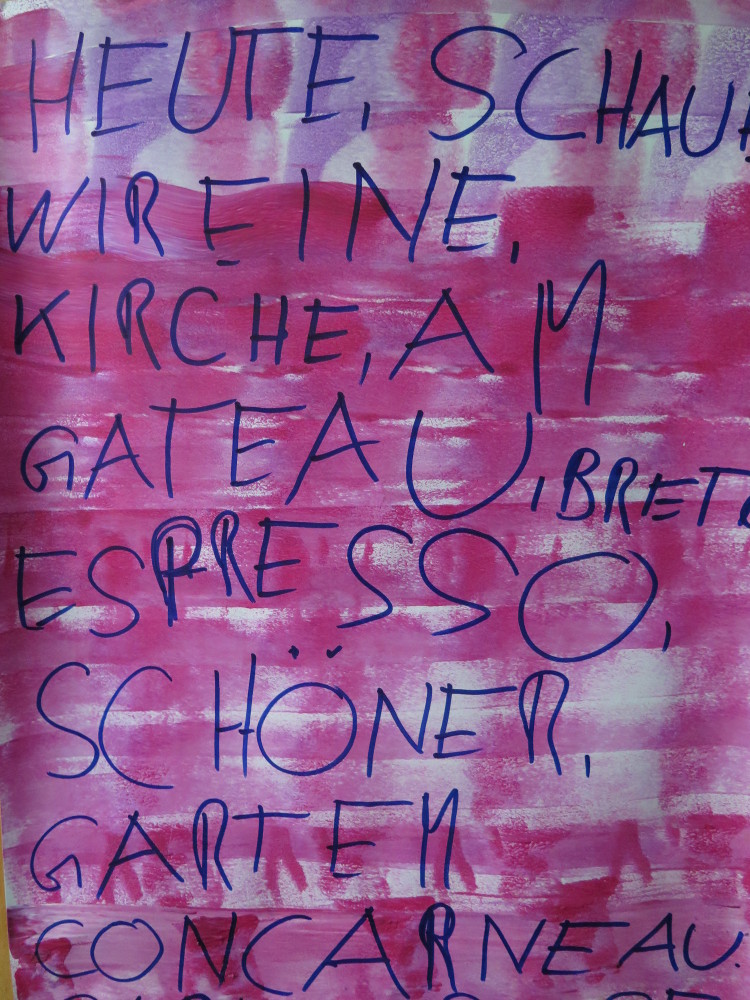 HEUTE, SCHAUE
WIR EINE,
KIRCHE, AM
GATEAU, BRETO
ESPRESSO,
SCHÖNER,
GARTEN
CONCARNEAU.